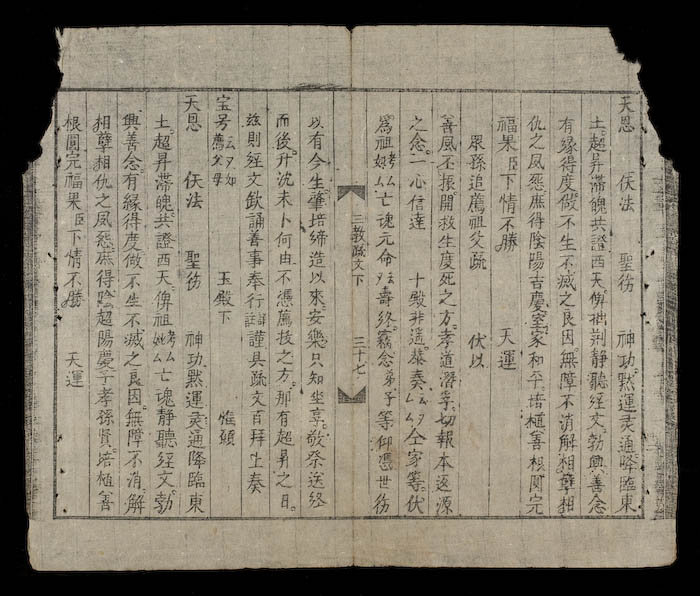 天恩 仸法 聖彷 神功默運灵通降臨東
土超昇滯魄共證西天俾拙荆静聽經文勃興善念
有縁得度做不生不滅之良因無障不消解相孽相
仇之夙怨庶得陰陽吉慶室家和平培植善根圓完
福果臣下情不勝 天運
眾孫追薦祖父疏 伏以
善風丕振開救生度死之方孝道潛孚切報本返源
之念一心信達 十殿非遥恭奏厶厶夕仝家等伏
爲祖考妣厶亡魂元命厶夕壽終竊念弟子等仰憑世彷
三教疏文下 三十七
以有今生肇培締造以來安樂只知坐享敬祭送終
而後升沈未卜何由不憑薦技之方那有超昇之日
兹則經文欽誦善事奉行謹具疏文百拜上奏
宝号厶夕如薦父母 玉殿下 惟願
天恩 仸法 聖彷 神功黙運灵通降臨東
土超昇滯魄共證西天俾祖考妣厶亡魂静聽經文勃
興善念有縁得度做不生不滅之良因無障不消解
相孽相仇之夙怨庶得陰超陽慶子孝孫賢培植善
根圓完福果臣下情不勝 天運